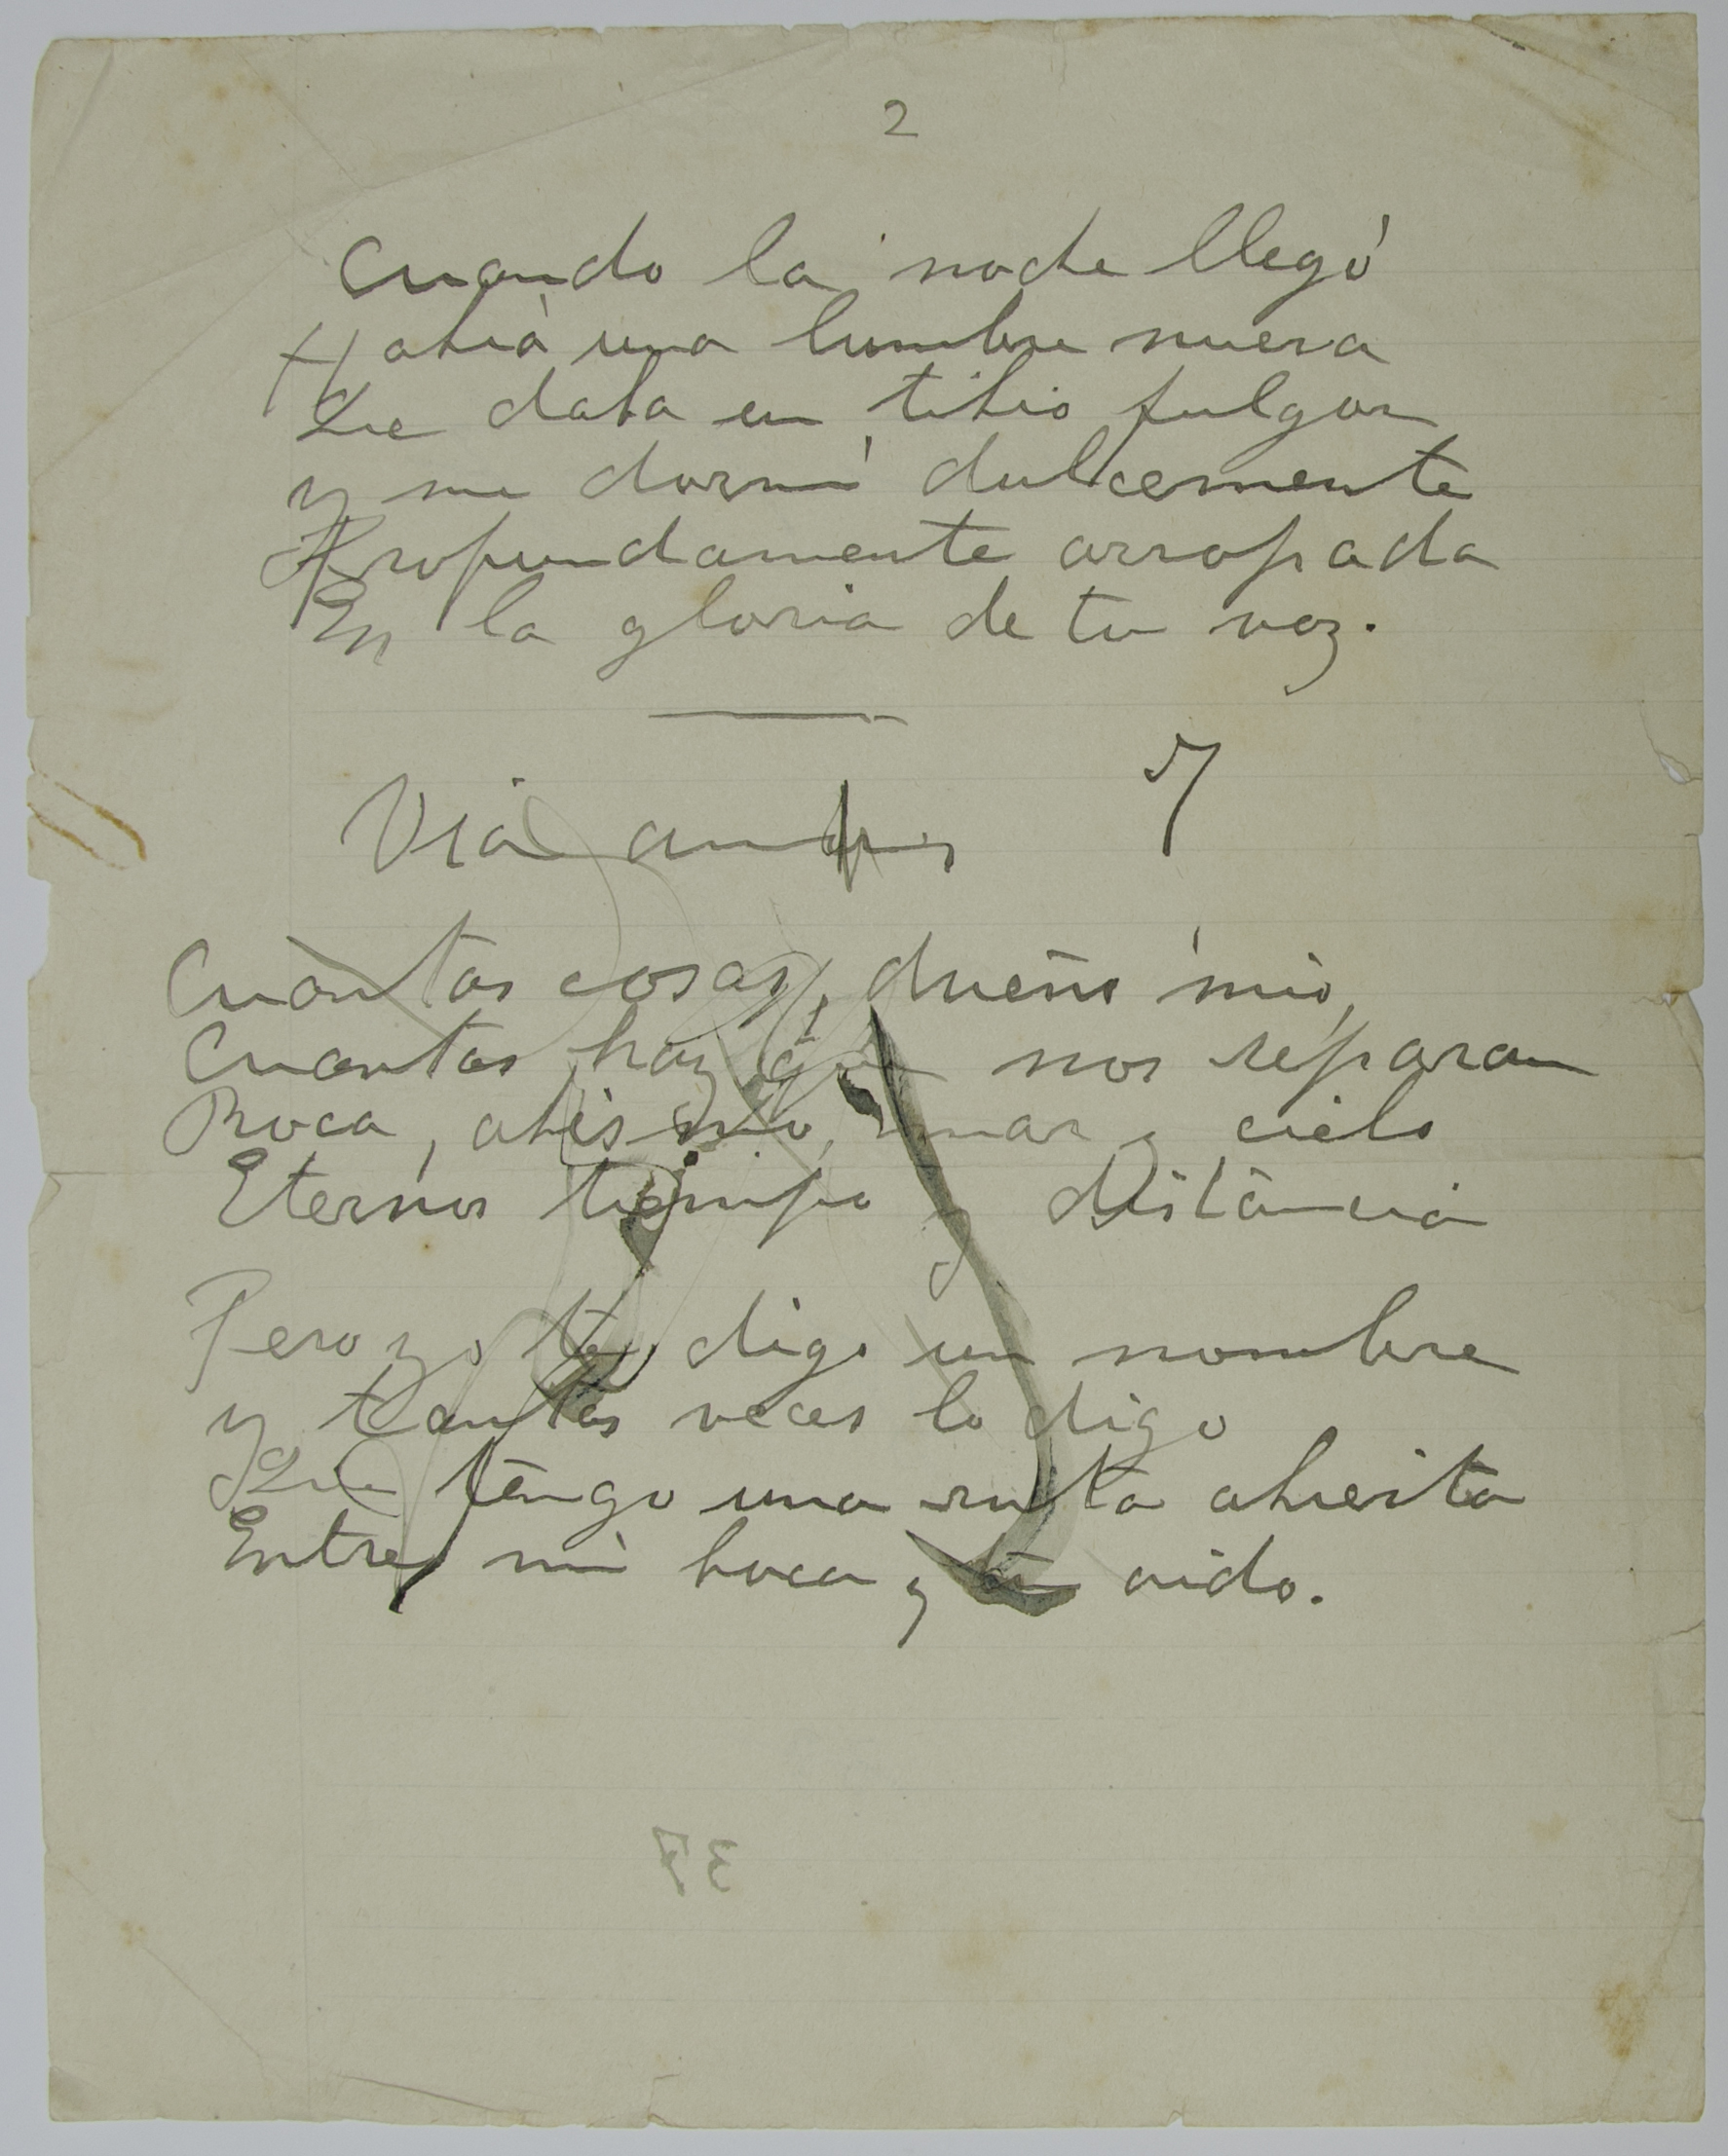 2
Cuando la noche llegó
Había una lumbre nueva
Que daba un tibio fulgor
y me dormí dulcemente
Profundamente arropada
En la gloria de tu voz.
Via
7
Cuántas cosas, dueño mío,
Cuantas hay que nos separan
Roca, abismo, mar y cielo
Eternos tiempo y distancia
Pero yo te digo un nombre
y tantas veces lo digo
Que tengo una ruta abierta
Entre mi boca y tu oido.
37